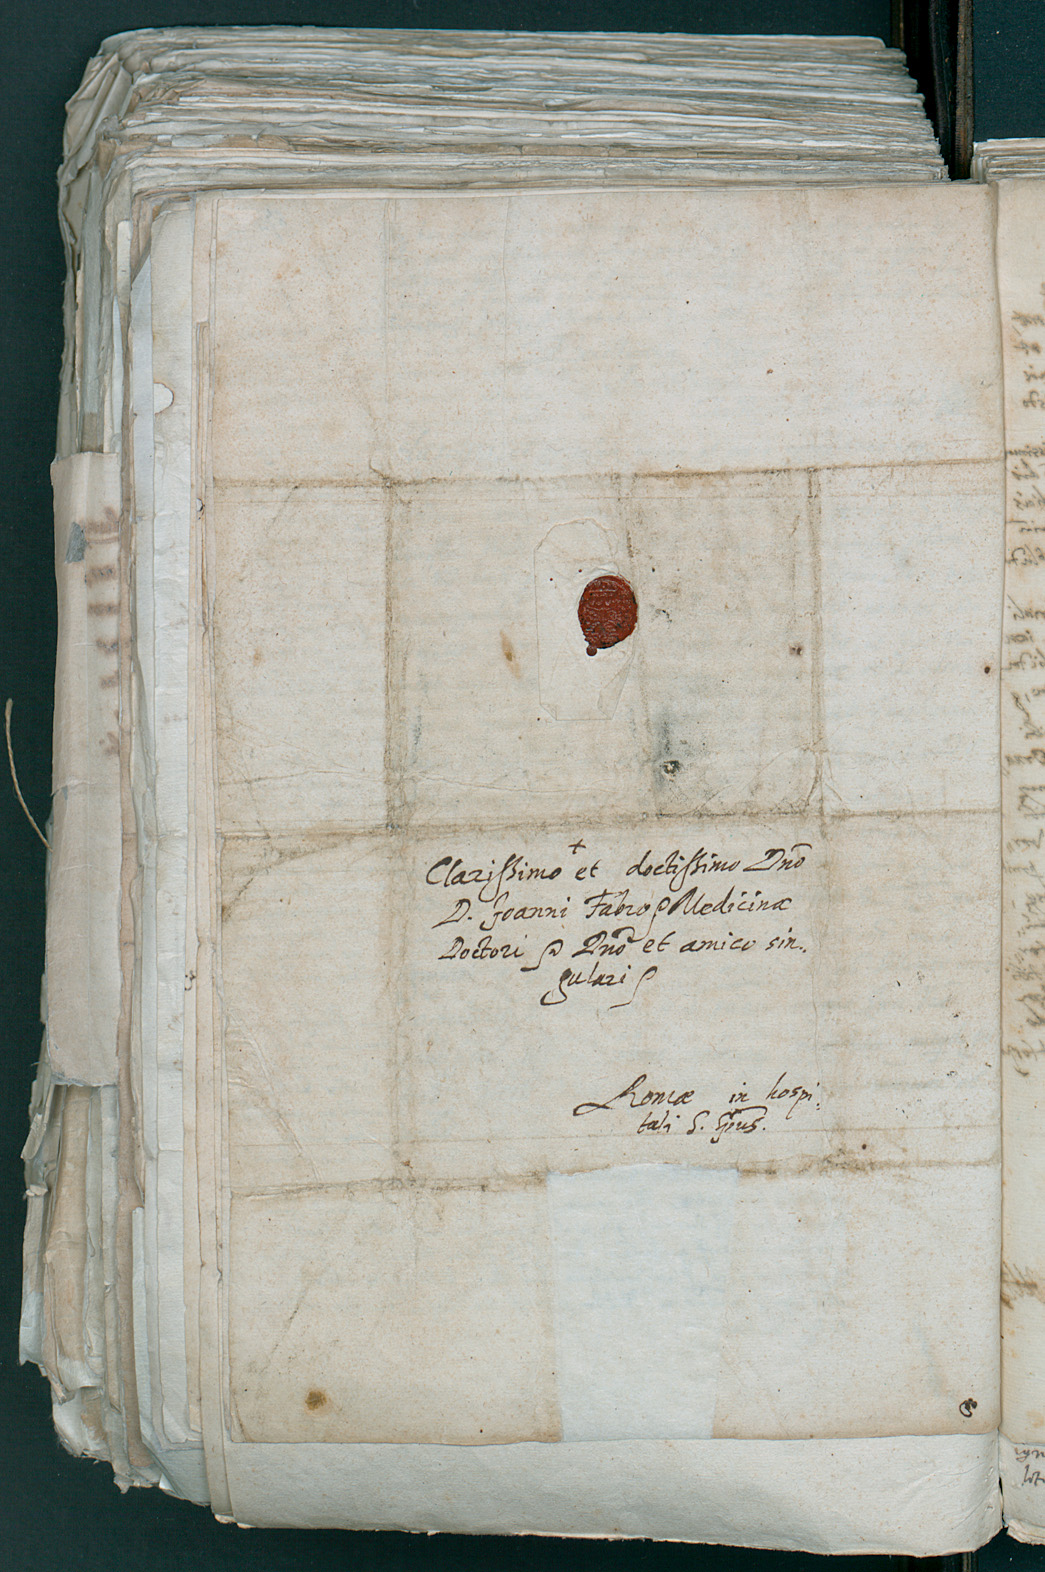 +
Clarissimo et doctissimo Dño
D. Joanni Fabro Medicinæ
Doctori Dño et amico sin-
gulari
Romæ in hospi-
tali S. Spũs.